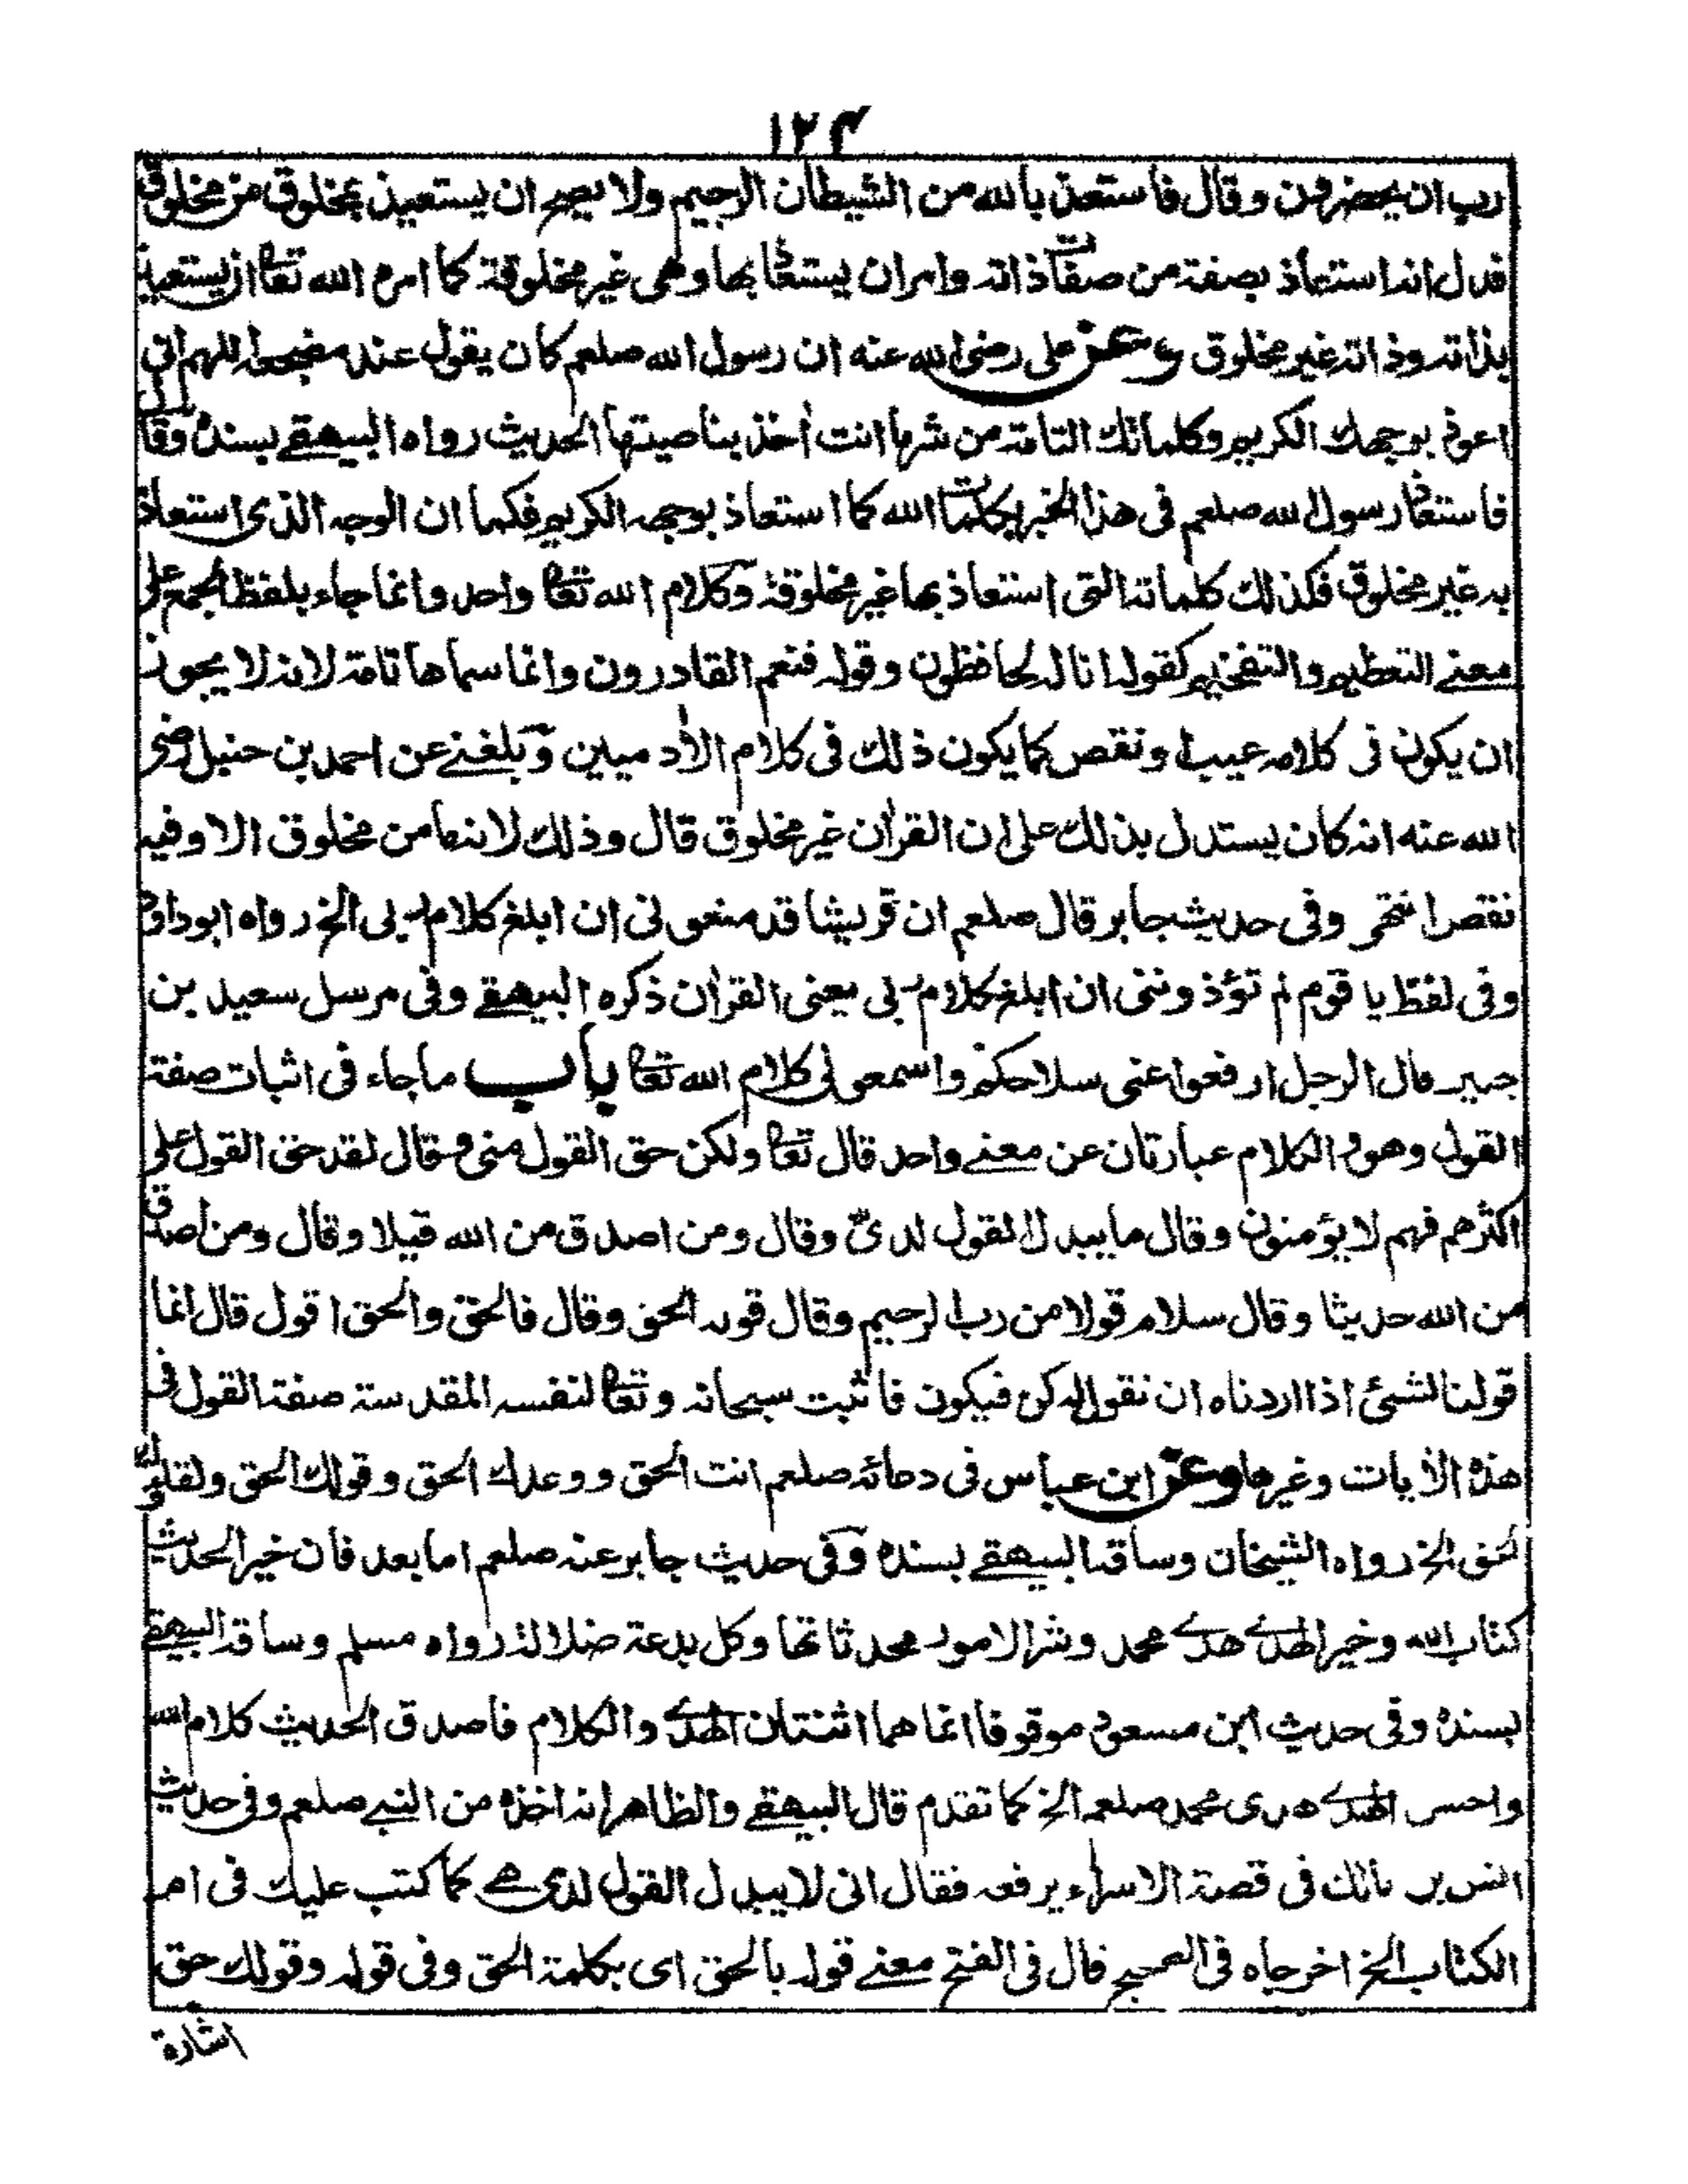 ١٢٤
رب ان يحضرون وقال فاستعذ بالله من الشيطان الرجيم ولا يصح ان يستعيذ بمخلوق من مخلوق
فدل انه استعاذ بصفة من صفات ذاته وامر ان يستعاذ بها وهى غير مخلوقة كما امره الله تعا ان يستعيذ
بذاته وذاته غير مخلوق وعن على رضى الله عنه ان رسول الله صلعم كان يقول عند مضجعه اللهم انى
اعوذ بوجهك الكريم وكلماتك التامة من شر ما انت اٰخذ بناصيتها الحديث رواه البيهقے بسنده وقال
فاستعاذ رسول الله صلعم فى هذا الخبر بكلمات الله كما استعاذ بوجهه الكريم فكما ان الوجه الذى استعاذ
به غير مخلوق فكذلك كلماته التى استعاذ بها غير مخلوقة وكلام الله تعا واحد وانما جاء بلفظ الجمع على
معنے التعظيم والتفخيم كقوله انا له لحافظون وقوله فنعم القادرون وانما سماها تامة لانه لا يجوز
ان يكون فى كلامه عيب او نقص كما يكون ذلك فى كلام الاٰدميين وبلغنے عن احمد بن حنبل رضى
الله عنه انه كان يستدل بذلك على ان القراٰن غير مخلوق قال وذلك لانه ما من مخلوق الا وفيه
نقص انتهى وفى حديث جابر قال صلعم ان قريشا قد منعونى ان ابلغ كلام ربى الخ رواه ابو داود
وفى لفظ يا قوم لم تؤذوننى ان ابلغ كلام ربى يعنى القراٰن ذكره البيهقے وفى مرسل سعيد بن
جبير قال الرجل ارفعوا عنى سلاحكم واسمعونى كلام الله تعا باب ما جاء فى اثبات صفة
القول وهو والكلام عبارتان عن معنے واحد قال تعا ولكن حق القول منى وقال لقد حق القول على
اكثرهم فهم لا يؤمنون وقال ما يبدل القول لدىّ وقال ومن اصدق من الله قيلا وقال ومن اصدق
من الله حديثا وقال سلام قولا من رب الرحيم وقال قوله الحق وقال فالحق والحق اقول قال انما
قولنا لشئ اذا اردناه ان نقول له كن فيكون فاثبت سبحانه وتعا لنفسه المقدسة صفة القول فى
هذه الاٰيات وغيرها وعن ابن عباس فى دعائه صلعم انت الحق ووعدك الحق وقولك الحق ولقاؤك
الحق الخ رواه الشيخان وساقه البيهقے بسنده وفى حديث جابر عنه صلعم اما بعد فان خير الحديث
كتاب الله وخير الهدے هدے محمد وشر الامور محدثاتها وكل بدعة ضلالة رواه مسلم وساقه البيهقے
بسنده وفى حديث ابن مسعود موقوفا انما هما اثنتان الهدے والكلام فاصدق الحديث كلام الله
واحسن الهدے هدى محمد صلعم الخ كما تقدم قال البيهقے والظاهر انه اخذه من النبے صلعم وفى حديث
انس بن مالك فى قصة الاسراء يرفعه فقال انى لا يبدل القول لدى هے كما كتب عليك فى ام
الكتاب الخ اخرجاه فى الصحيح قال فى الفتح معنے قوله بالحق اى بكلمة الحق وفى قوله وقولك حق
اشارة